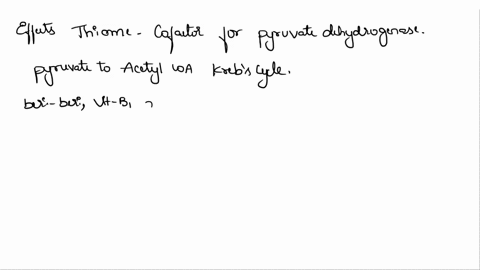 Effects Thiamne - Cofactor for pyruvate dehydrogenase.
pyruvate to Acetyl COA Kreb's cycle.
beri-beri, Vit-B1